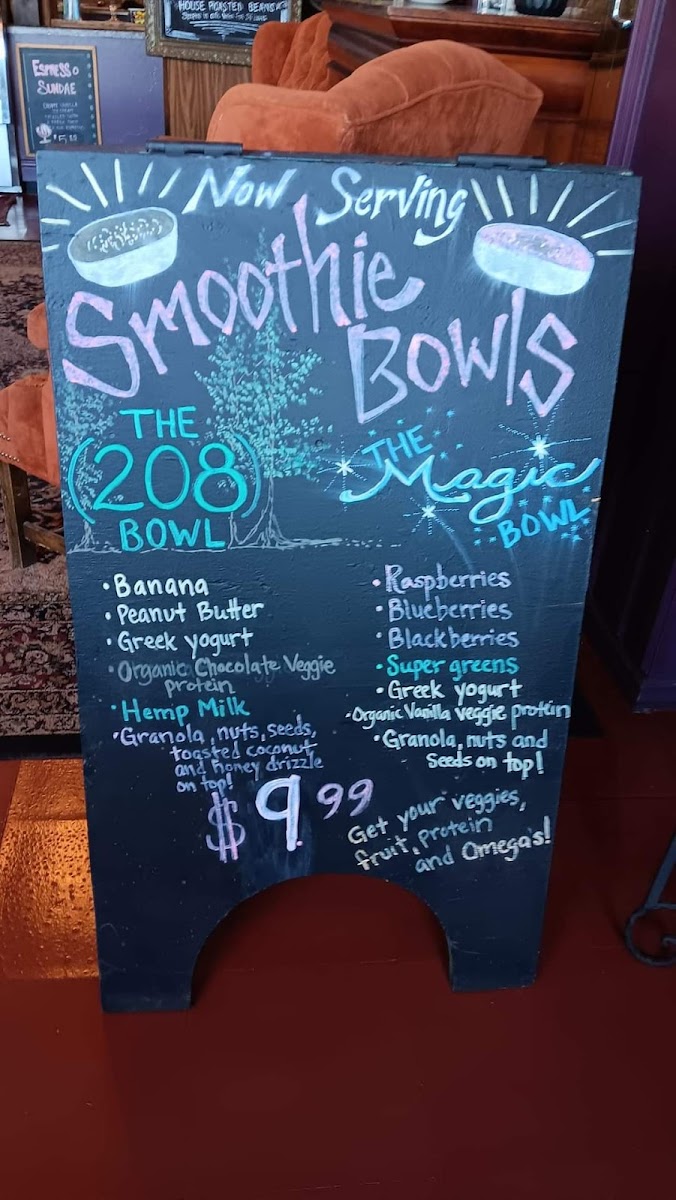 HOUSE ROASTED BEANS
ESPRESSO
SUNDAE
Now Serving
Smoothie
Bowls
THE
(208)
BOWL
• Banana
• Peanut Butter
• Greek yogurt
• Organic Chocolate Veggie
protein
• Hemp Milk
• Granola, nuts, seeds,
toasted coconut
and honey drizzle
on top!
THE
Magic
BOWL
• Raspberries
• Blueberries
• Blackberries
• Super greens
• Greek yogurt
• Organic Vanilla veggie protein
• Granola, nuts and
Seeds on top!
$9.99
Get your veggies,
fruit, protein
and Omega's!